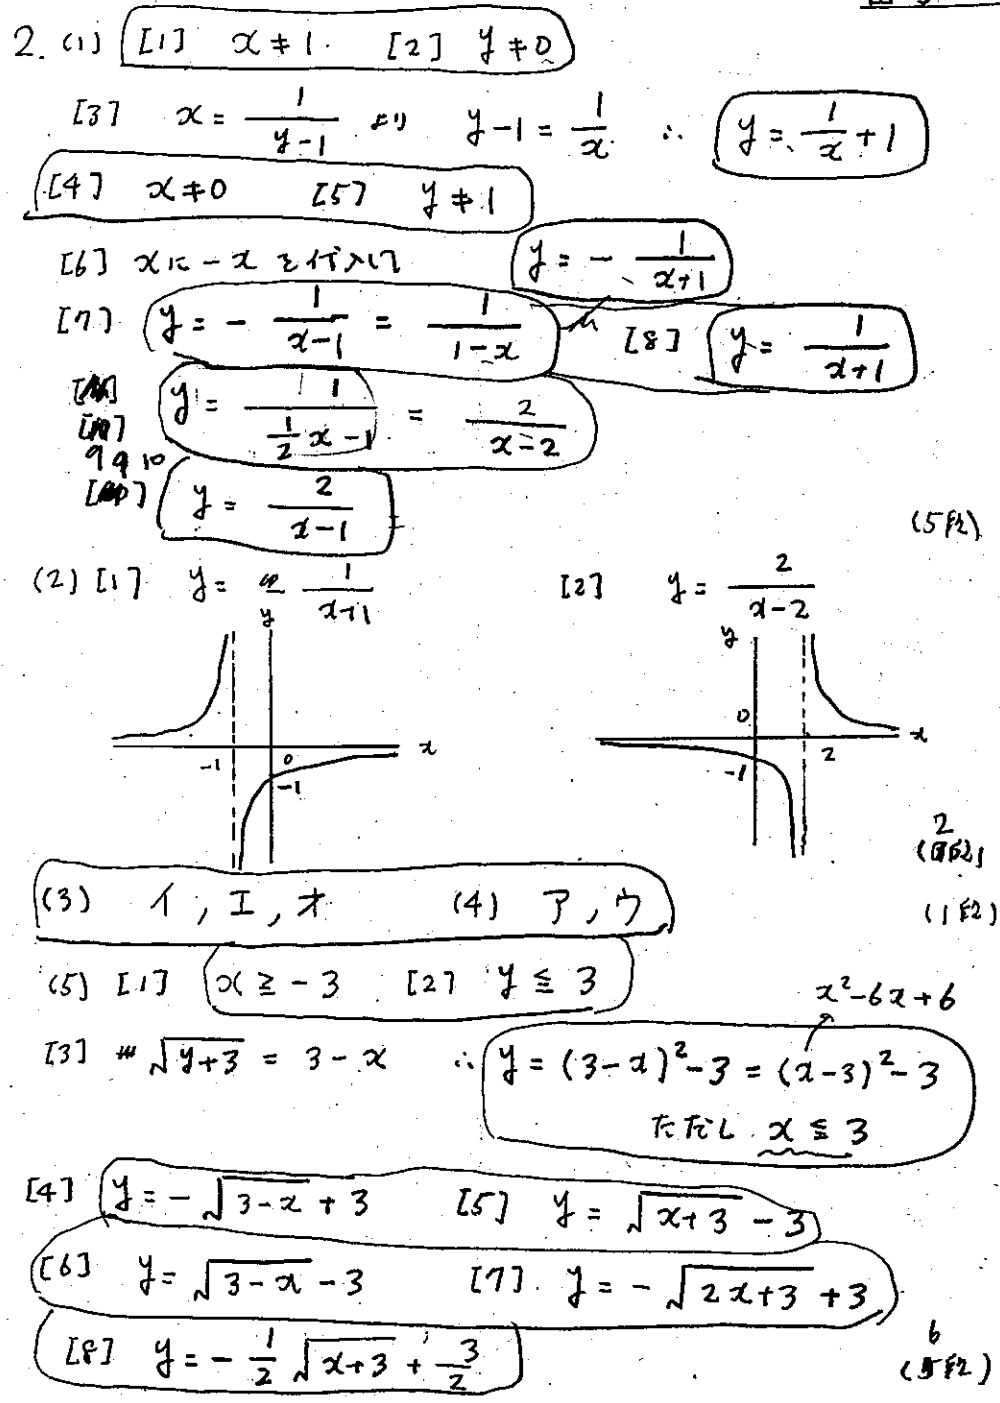 2. (1) [1] x≠1. [2] y≠0
[3] x = 1/(y-1) より y-1 = 1/x ∴ y = 1/x + 1
[4] x≠0 [5] y≠1
[6] xに-xを代入して y = - 1/(x+1)
[7] y = - 1/(x-1) = 1/(1-x) [8] y = 1/(x+1)
y = 1/(1/2 x - 1) = 2/(x-2)
9 9 10
y = 2/(x-1)
(5段)
(2) [1] y = - 1/(x+1) [2] y = 2/(x-2)
y y
0
x x
-1 0 2
-1 -1
2
(3) イ, エ, オ (4) ア, ウ (1段)
(5) [1] x ≧ -3 [2] y ≦ 3
x²-6x+6
[3] √(y+3) = 3-x ∴ y = (3-x)²-3 = (x-3)²-3
ただし x ≦ 3
[4] y = -√(3-x) + 3 [5] y = √(x+3) - 3
[6] y = √(3-x) - 3 [7]. y = -√(2x+3) + 3
6
[8] y = - 1/2 √(x+3) + 3/2